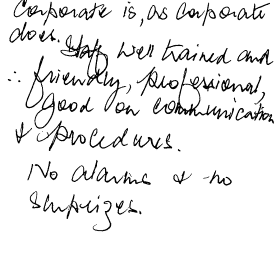 Corporate is, as corporate
does. Staff well trained and
∴ friendly, professional,
good on communication
& procedures.
No alarms & no
surprizes.